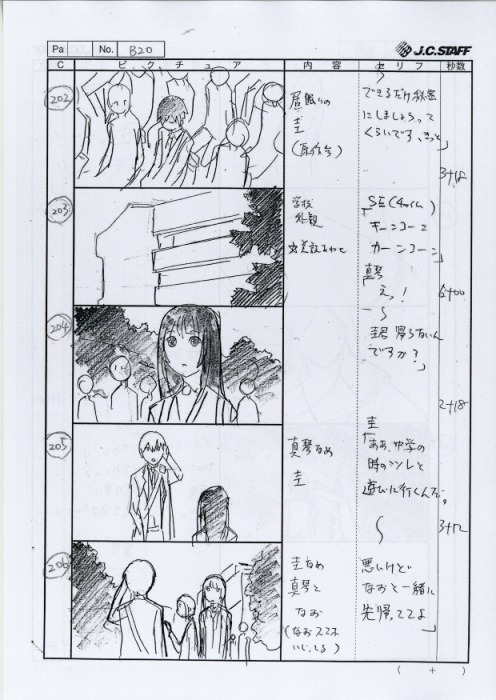 Pa
No.
B20
J.C.STAFF
C
ピクチュア
内容
セリフ
秒数
202
居眠りの
圭
(原作合)
できるだけ秘密
にしましょうって
くらいです、きっと」
3+12
203
学校
外観
SE(チャイム)
「キーンコーン
カーンコーン」
6+00
204
真琴
「えっ!
圭君 帰らないん
ですか?
2+18
205
真琴なめ
圭
圭
「ああ、中学の
時のツレと
遊びに行くんだ。
3+12
206
圭なめ
真琴と
なお
(なおスマホ
いじってる)
悪いけど
なおと一緒に
先帰っててよ」
( + )